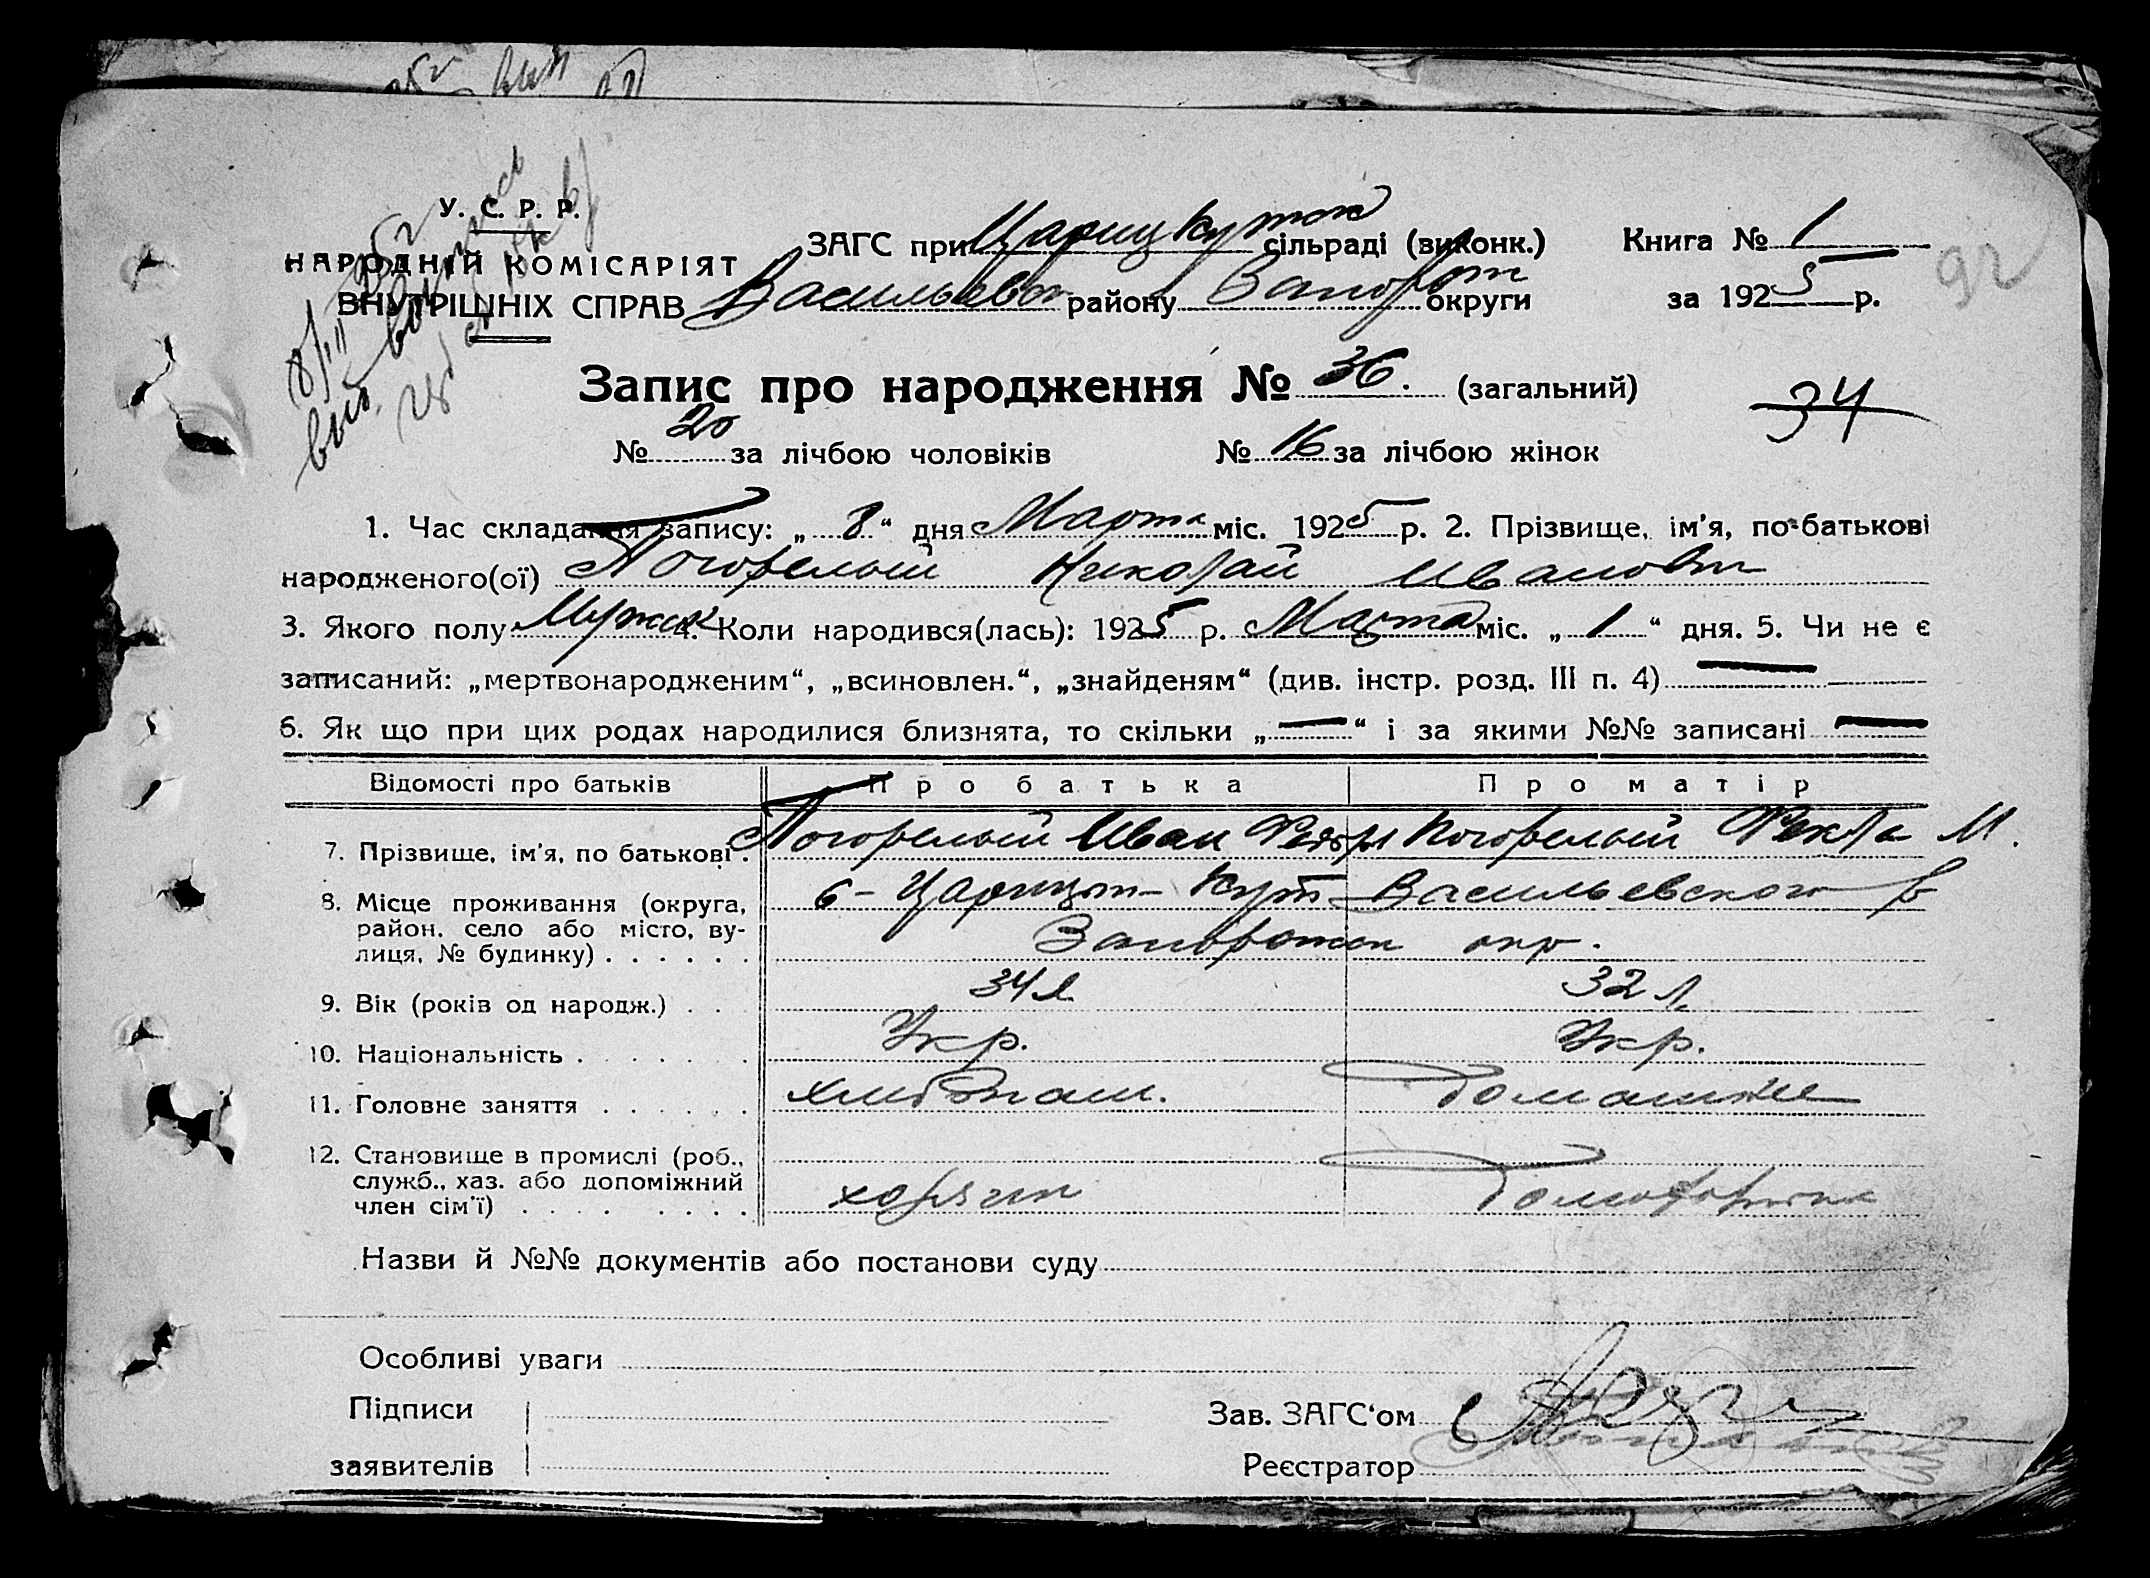 У. С. Р. Р.
НАРОДНІЙ КОМІСАРІЯТ
ВНУТРІШНІХ СПРАВ
ЗАГС при Царицкутск сільраді (виконк.) Книга № 1
Васильевск району Запорож округи за 1925 р.
92
Запис про народження № 36. (загальний)
34
№ 20 за лічбою чоловіків № 16 за лічбою жінок
1. Час складання запису: „ 8 “ дня Марта міс. 1925 р. 2. Прізвище, ім'я, по-батькові
народженого(ої) Погорелый Николай Иванович
3. Якого полу Мужск 4. Коли народився(лась): 1925 р. Марта міс. „ 1 “ дня. 5. Чи не є
записаний: „мертвонародженим“, „всиновлен.“, „знайденям“ (див. інстр. розд. III п. 4) —
6. Як що при цих родах народилися близнята, то скільки „ — “ і за якими №№ записані —
Відомості про батьків Про батька Про матір
7. Прізвище, ім'я, по батькові. Погорелый Иван Федор Погорелый Фекла М.
8. Місце проживання (округа, район, село або місто, ву-
лиця, № будинку) . . . . . . Царицын-Кут Васильевского р
Запорожск окр.
9. Вік (років од народж.) . . . 34 л 32 л.
10. Національність . . . . . . . Укр. Укр.
11. Головне заняття . . . . . . хлибопаш. Домашние
12. Становище в промислі (роб.,
служб., хаз. або допоміжний
член сім'ї) . . . . . . . . . хозяин
Назви й №№ документів або постанови суду
Особливі уваги
Підписи
заявителів
Зав. ЗАГС'ом
Реєстратор